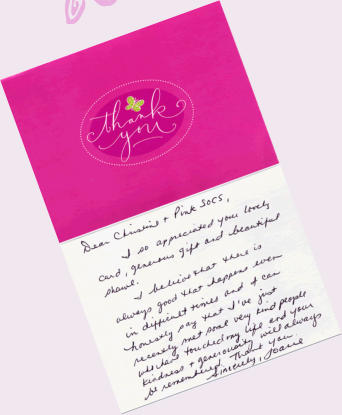 thank
you
Dear Christine + Pink SOCS,
I so appreciated your lovely
card, generous gift and beautiful
shawl.
I believe that there is
always good that happens even
in difficult times and I can
honestly say that I've just
recently met some very kind people
who have touched my life and your
kindness + generosity will always
be remembered. Thank you.
Sincerely, Joanie